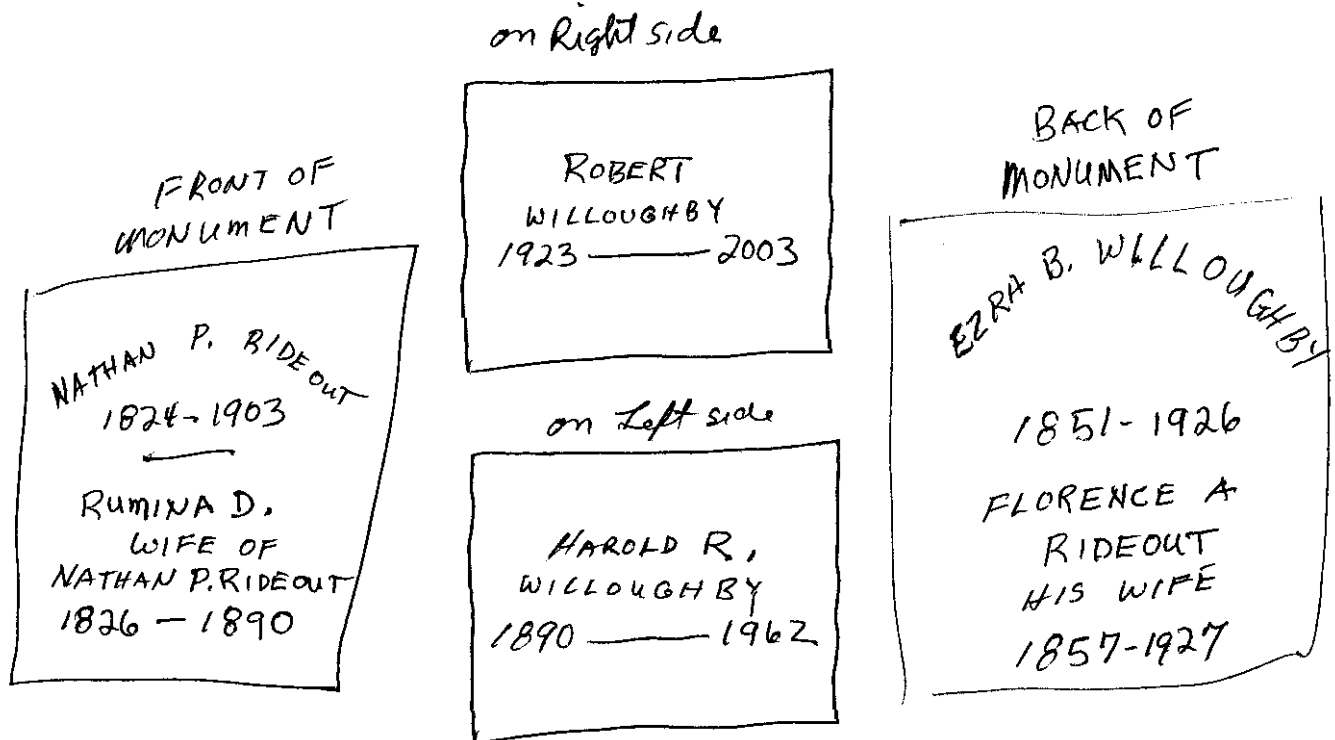 FRONT OF
MONUMENT
NATHAN P. RIDEOUT
1824-1903
RUMINA D.
WIFE OF
NATHAN P. RIDEOUT
1826 — 1890
on Right side
ROBERT
WILLOUGHBY
1923 — 2003
on Left side
HAROLD R.
WILLOUGHBY
1890 — 1962
BACK OF
MONUMENT
EZRA B. WILLOUGHBY
1851-1926
FLORENCE A
RIDEOUT
HIS WIFE
1857-1927